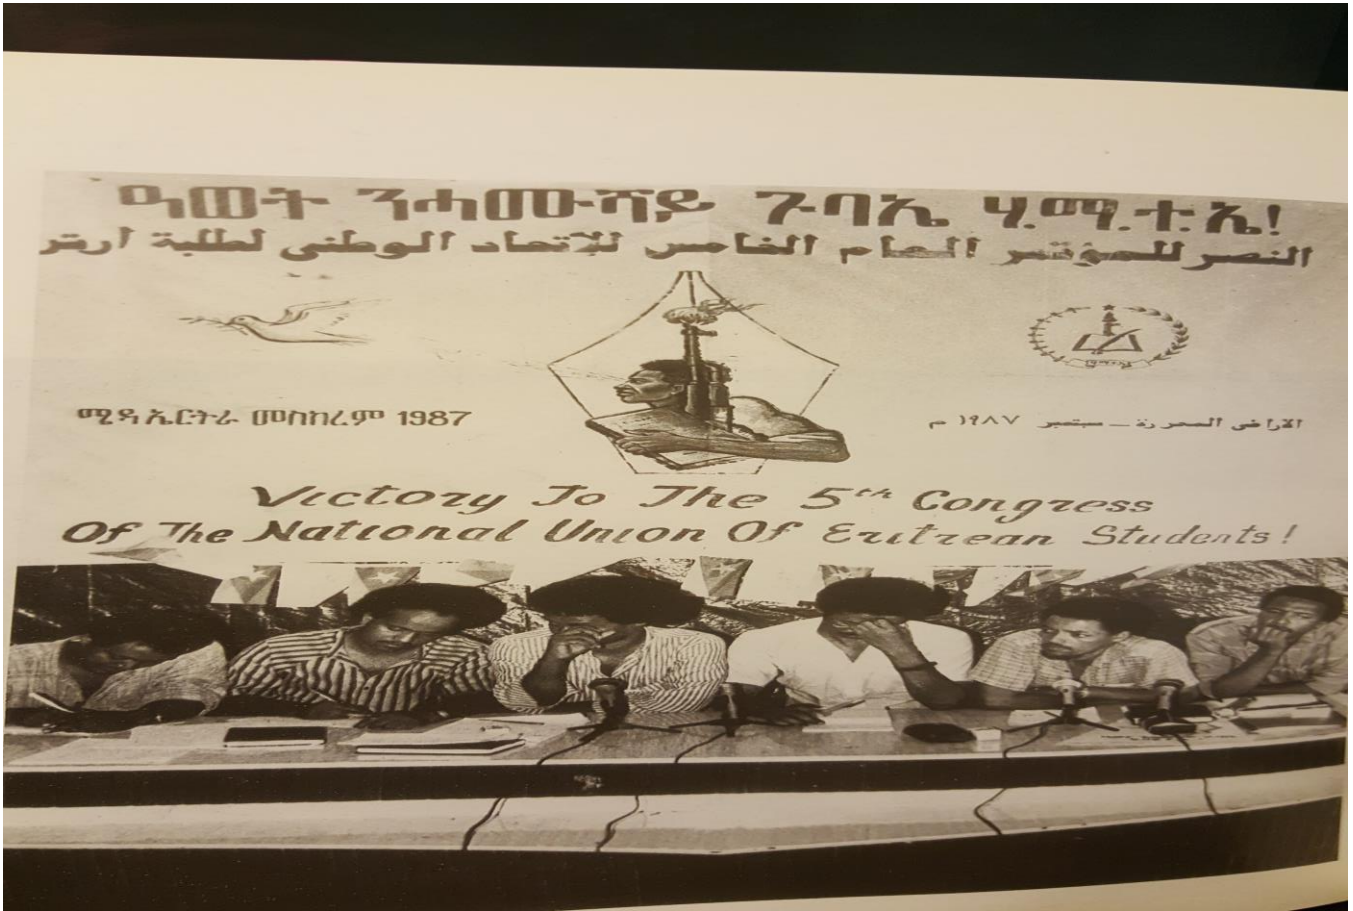 ዓወት ንሓሙሻይ ጉባኤ ሃ.ማ.ተ.ኤ!
النصر للمؤتمر العام الخامس للاتحاد الوطني لطلبة ارتر
ሜዳ ኤርትራ መስከረም 1987
الاراضى المحررة _ سبتمبر ١٩٨٧ م
Victory To The 5th Congress
Of The National Union Of Eritrean Students!